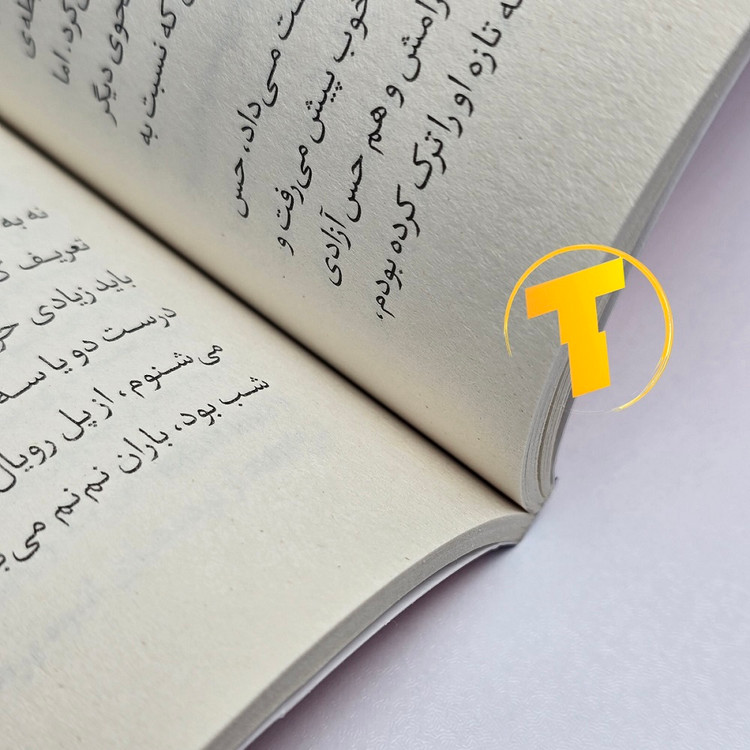 کرد. اما
دیگر
که نسبت به
می‌داد، حس
خوب پیش می‌رفت و
و هم حس آزادی
تازه او را ترک کرده بودم،
نه به
تعریف
باید زیادی
درست دو یا سه
می‌شنوم، از پل رویال
شب بود، باران نم‌نم
T